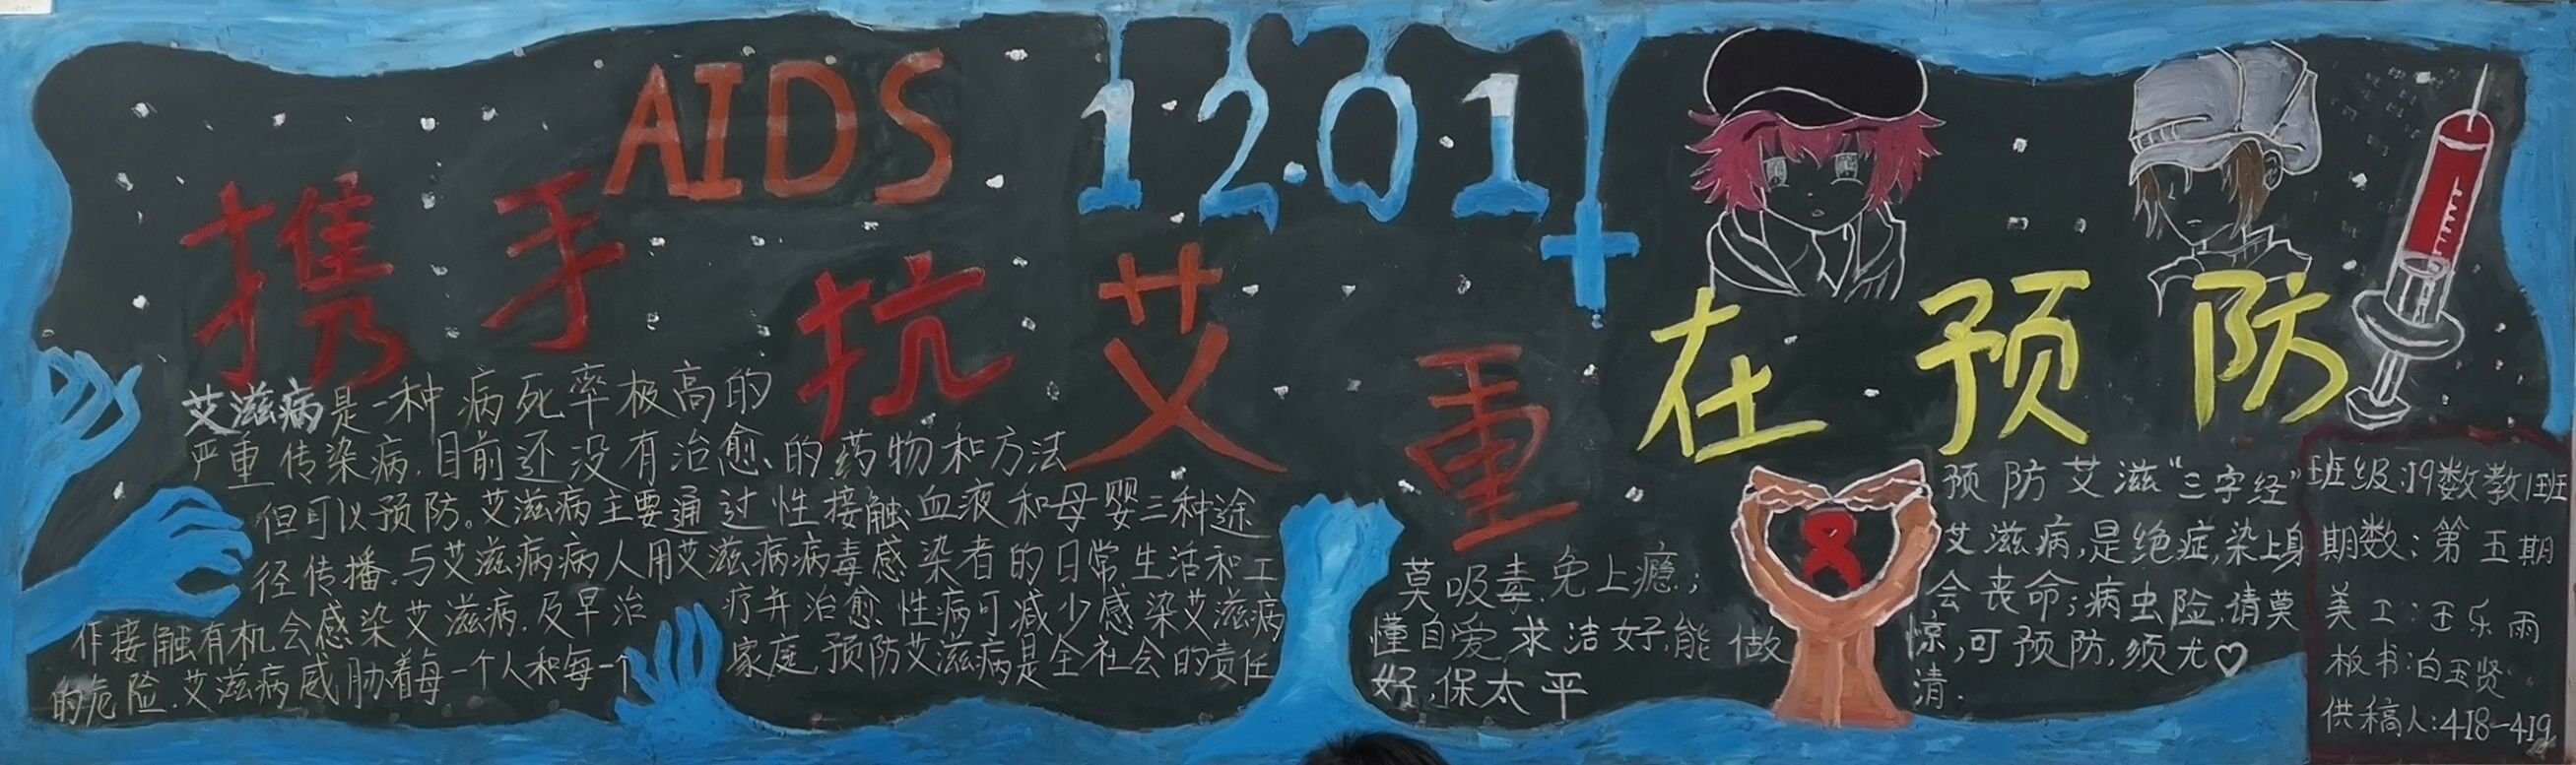 AIDS 12.01
携手抗艾重在预防
艾滋病是一种病死率极高的
严重传染病.目前还没有治愈的药物和方法
但可以预防。艾滋病主要通过性接触血液和母婴三种途
径传播.与艾滋病病人用艾滋病病毒感染者的日常生活和工
作接触有机会感染艾滋病.及早治疗并治愈性病可减少感染艾滋病
的危险.艾滋病威胁着每一个人和每一个家庭.预防艾滋病是全社会的责任
预防艾滋"三字经"
艾滋病,是绝症,染上身
会丧命;病虫险.请莫
惊,可预防,须尤♡
清.
莫吸毒.免上瘾;
懂自爱,求洁好,能做
好,保太平
班级:19数教1班
期数:第五期
美工:王乐雨
板书:白玉贤
供稿人:418-419